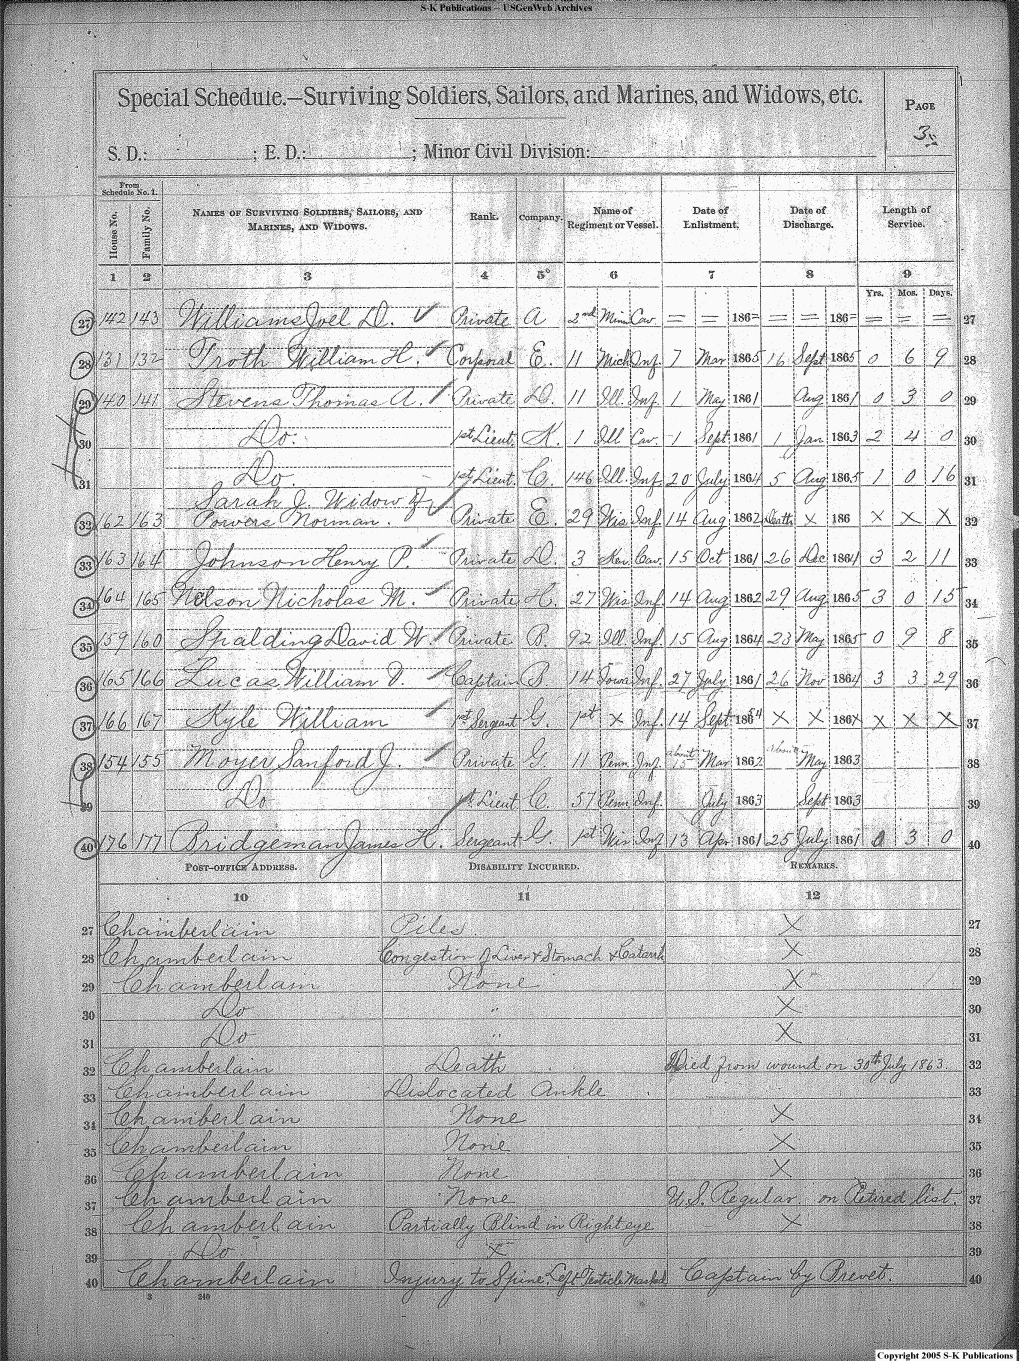 S-K Publications – USGenWeb Archives
Special Schedule.—Surviving Soldiers, Sailors, and Marines, and Widows, etc.
PAGE
3
S. D.: ; E. D.: ; Minor Civil Division:
From Schedule No. 1.
House No. Family No. NAMES OF SURVIVING SOLDIERS, SAILORS, AND MARINES, AND WIDOWS. Rank. Company. Name of Regiment or Vessel. Date of Enlistment. Date of Discharge. Length of Service.
1 2 3 4 5 6 7 8 9
Yrs. Mos. Days.
27 142 143 Williams Joel D. Private A 2nd Minn Cav. = = 186= = = 186= = = = 27
28 131 132 Troth William H. Corporal E. 11 Mich Inf. 7 Mar 1865 16 Sept 1865 0 6 9 28
29 140 141 Stevens Thomas A. Private D. 11 Ill. Inf. 1 May 1861 Aug 1861 0 3 0 29
30 Do. 1st Lieut. K. 1 Ill Cav. 1 Sept. 1861 1 Jan 1863 2 4 0 30
31 Do. 1st Lieut. C. 146 Ill. Inf. 20 July 1864 5 Aug 1865 1 0 16 31
Sarah J. Widow of
32 162 163 Powers Norman. Private E. 29 Wis Inf. 14 Aug 1862 Death X 186 X X X 32
33 163 164 Johnson Henry P. Private D. 3 Cav. 15 Oct 1861 26 Dec 1864 3 2 11 33
34 164 165 Nelson Nicholas M. Private H. 27 Wis Inf. 14 Aug 1862 29 Aug 1865 3 0 15 34
35 159 160 Spalding David W. Private B. 92 Ill. Inf. 15 Aug 1864 23 May 1865 0 9 8 35
36 165 166 Lucas William V. Captain B 14 Iowa Inf. 27 July 1861 26 Nov 1864 3 3 29 36
37 166 167 Kyle William 1st Sergeant G. 1st X Inf. 14 Sept 1854 X X 186X X X X 37
38 154 155 Moyer Sanford J. Private G. 11 Penn. Inf. about 15 Mar 1862 about May 1863 38
39 Do 1st Lieut C. 57 Penn Inf. July 1863 Sept 1863 39
40 176 177 Bridgeman James H. Sergeant G. 1st Inf 13 Apr 1861 25 July 1861 0 3 0 40
POST-OFFICE ADDRESS. DISABILITY INCURRED. REMARKS.
10 11 12
27 Chamberlain Piles X 27
28 Chamberlain Congestion of Liver & Stomach & Catarrh X 28
29 Chamberlain None X 29
30 Do " X 30
31 Do " X 31
32 Chamberlain Death Died from wound on 30th July 1863. 32
33 Chamberlain Dislocated Ankle 33
34 Chamberlain None X 34
35 Chamberlain None X 35
36 Chamberlain None X 36
37 Chamberlain None U.S. Regular. on Retired list. 37
38 Chamberlain Partially Blind in Right eye X 38
39 Do X 39
40 Chamberlain Injury to Spine. Left Testicle Captain by Brevet. 40
3 240
Copyright 2005 S-K Publications